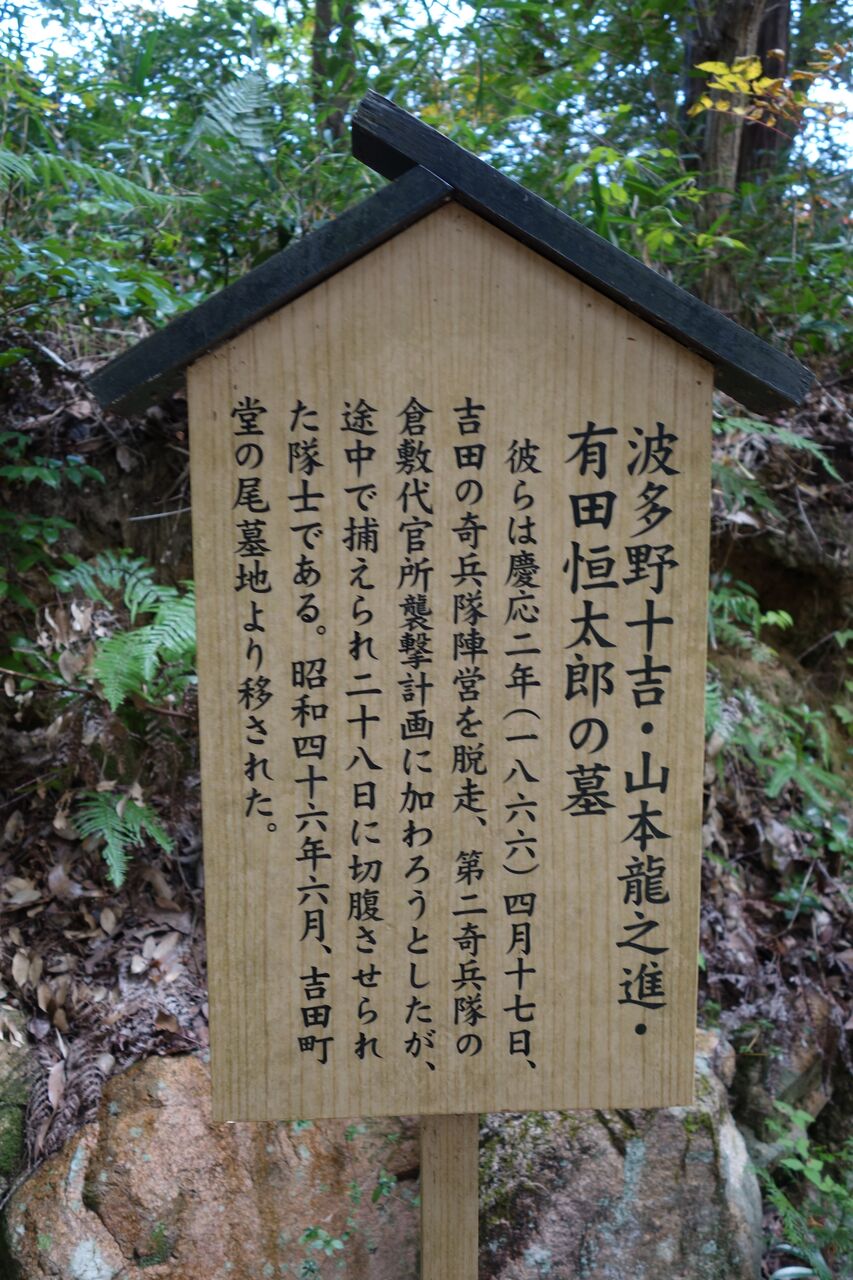 波多野十吉・山本龍之進・
有田恒太郎の墓
彼らは慶応二年(一八六六)四月十七日、
吉田の奇兵隊陣営を脱走、第二奇兵隊の
倉敷代官所襲撃計画に加わろうとしたが、
途中で捕えられ二十八日に切腹させられ
た隊士である。昭和四十六年六月、吉田町
堂の尾墓地より移された。